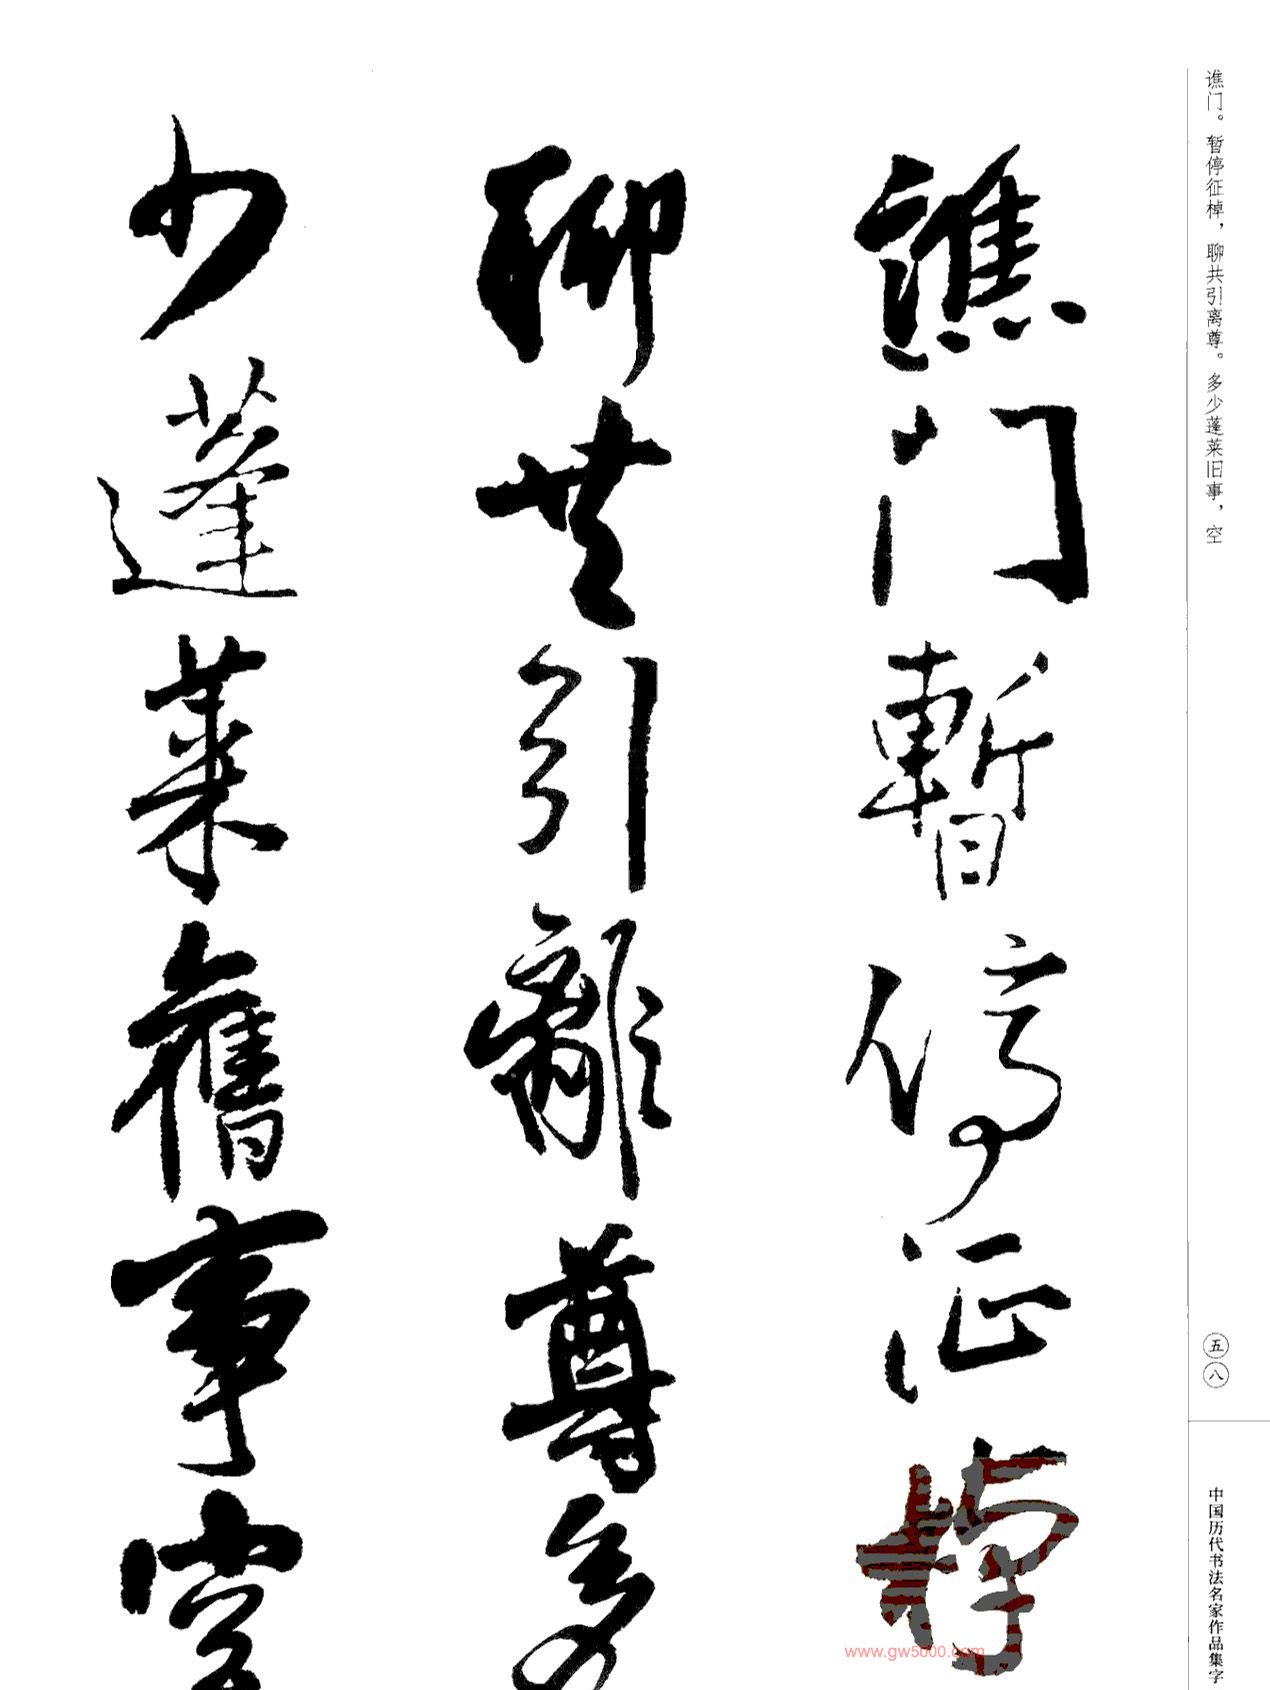 谯门。暂停征棹，聊共引离尊。多少蓬莱旧事，空
譙門暫停征棹
聊共引離尊多
少蓬萊舊事空
五八
中国历代书法名家作品集字
www.gw5000.com